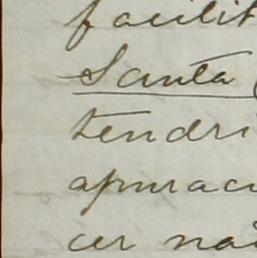 facilit
Santa (
tendri
apurac
cer na